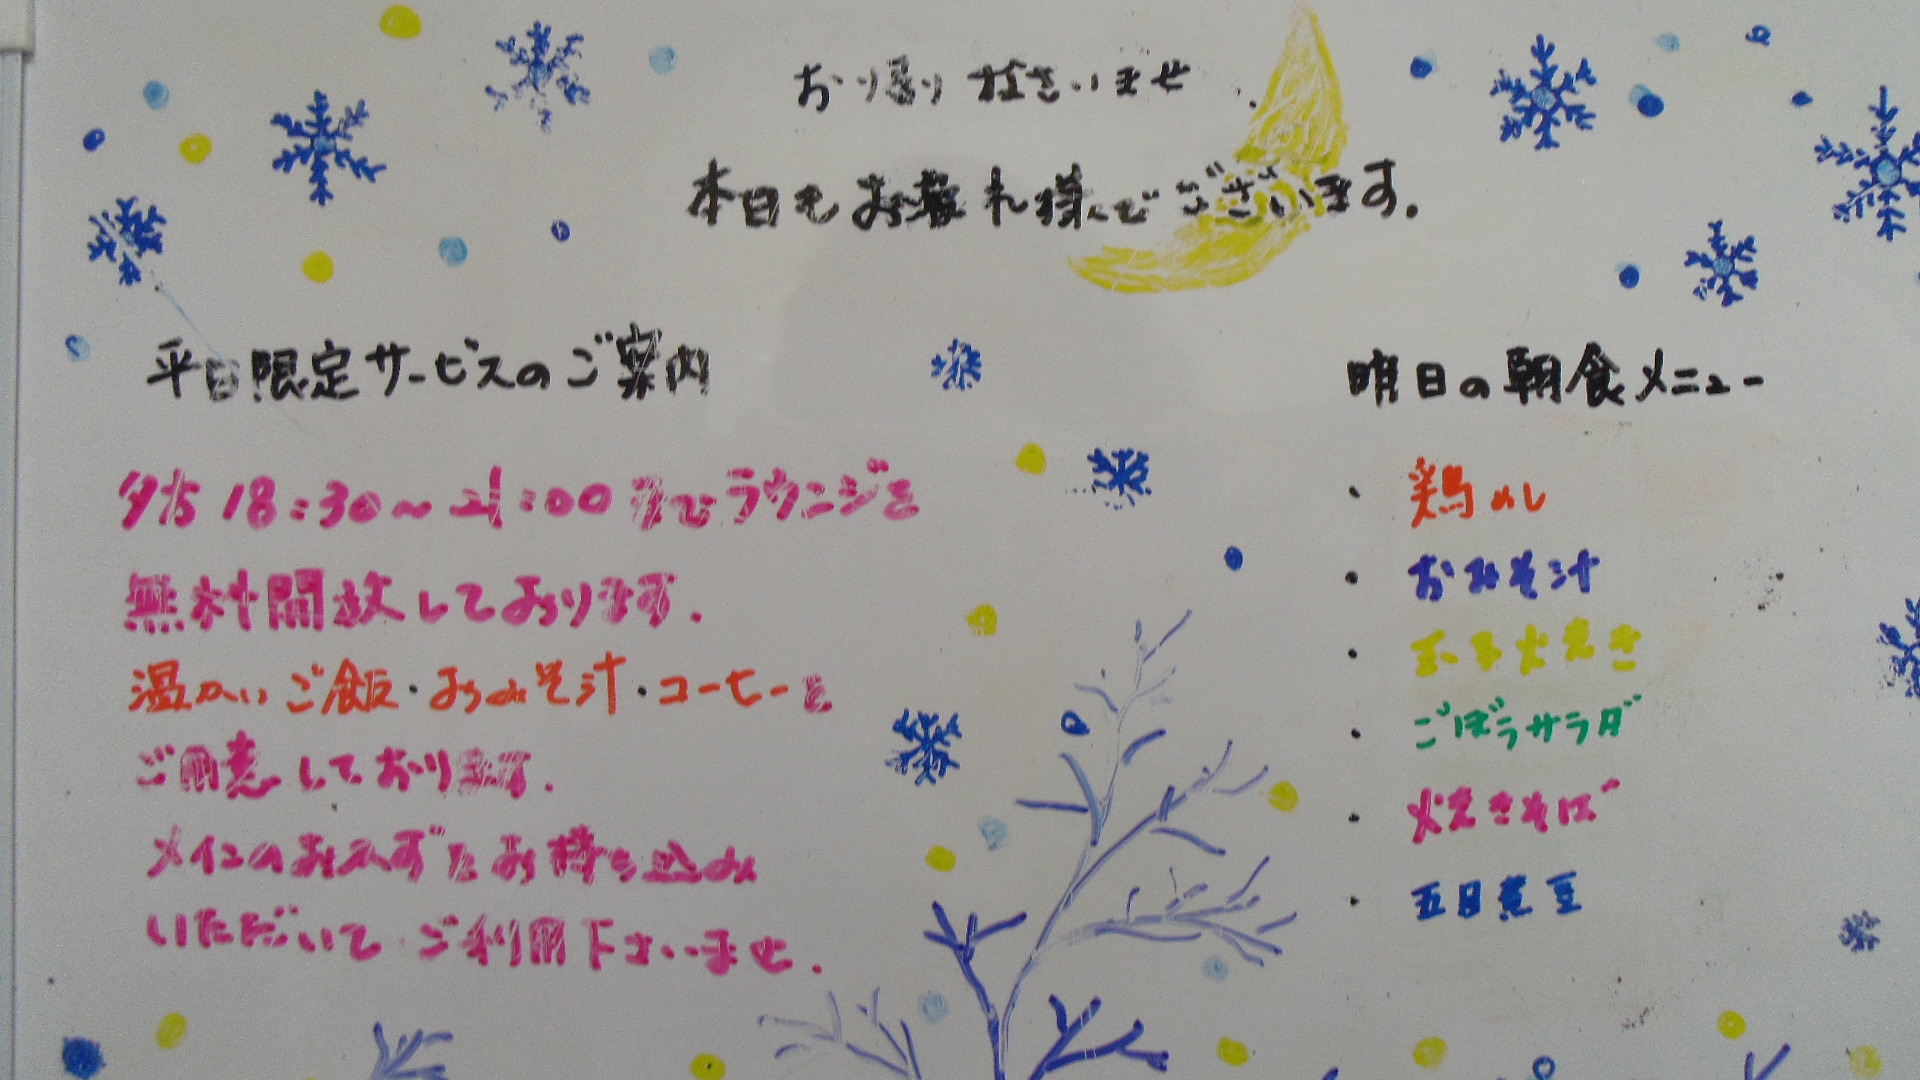 お帰りなさいませ
本日もお疲れ様でございます。
平日限定サービスのご案内
夕方18:30~21:00までラウンジを
無料開放しております。
温かいご飯・おみそ汁・コーヒーを
ご用意しております。
メインのおかずをお持ち込み
いただいてご利用下さいませ。
明日の朝食メニュー
・鶏めし
・おみそ汁
・玉子焼き
・ごぼうサラダ
・焼きそば
・五目煮豆